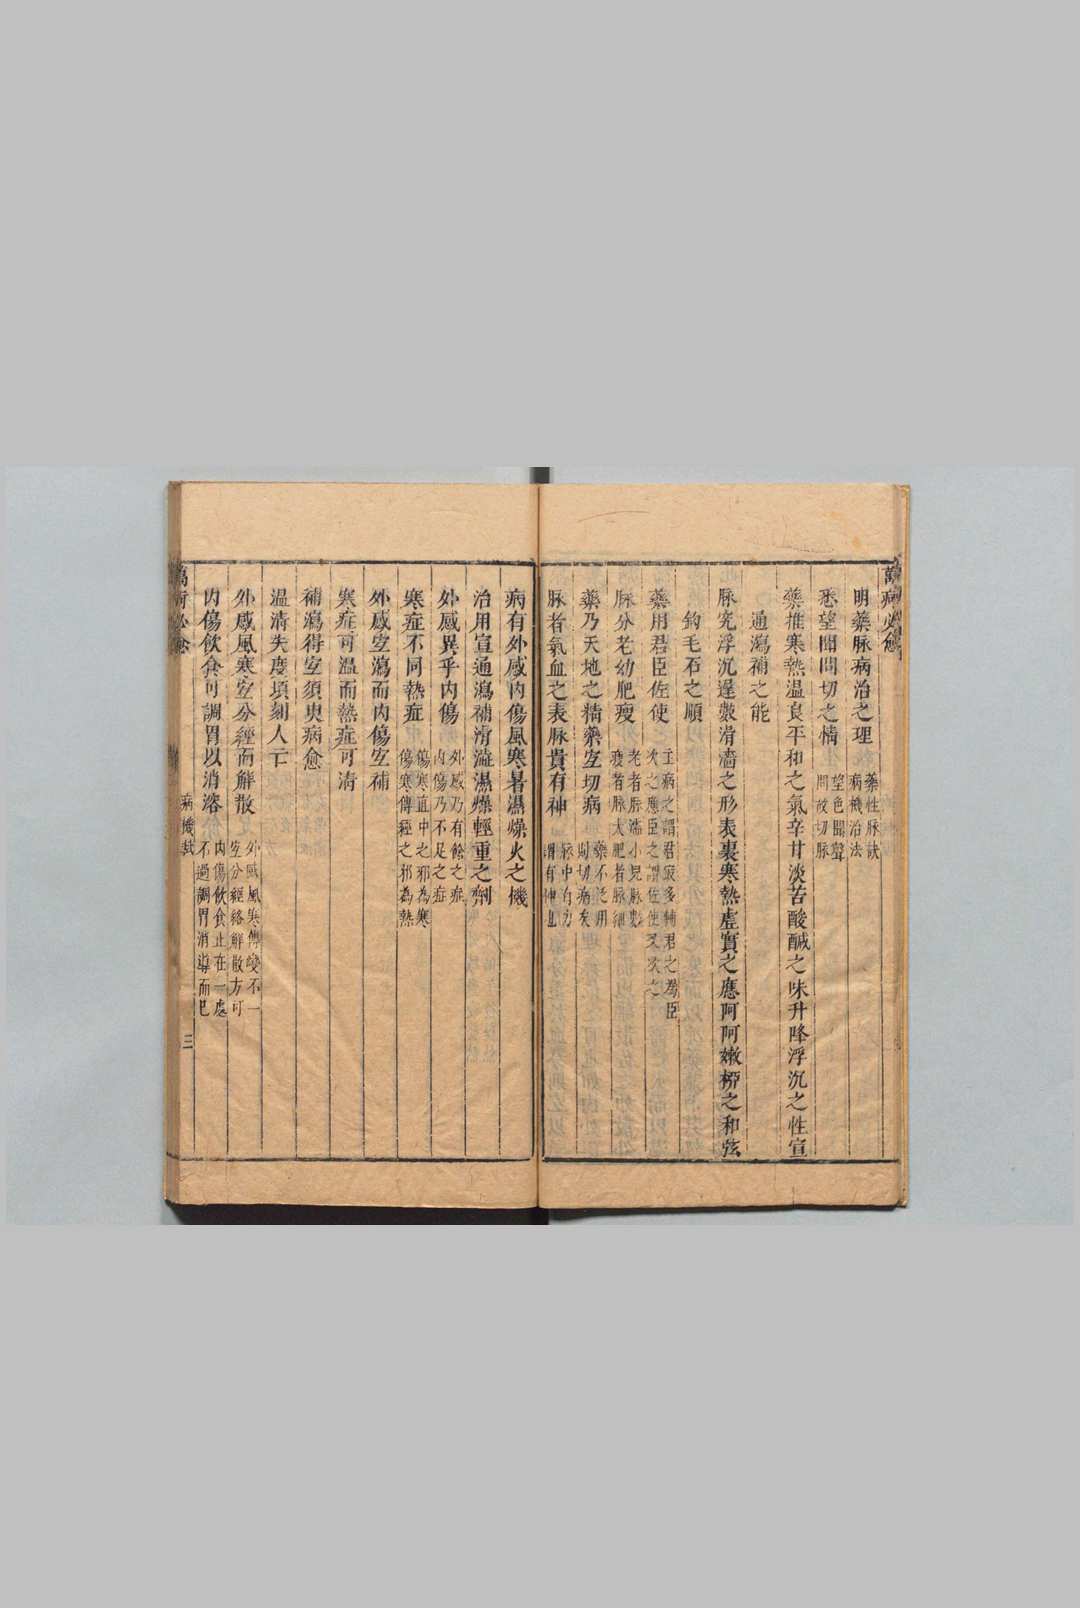 萬病必愈
明藥脉病治之理 藥性脉訣 病機治法
悉望聞問切之情 望色聞聲 問故切脉
藥推寒熱温良平和之氣辛甘淡苦酸醎之味升降浮沉之性宣
通瀉補之能
脉究浮沉遲數滑濇之形表裏寒熱虛實之應阿阿嫩桞之和弦
鈎毛石之順
藥用君臣佐使 主病之謂君最多輔君之爲臣 次之應臣之謂佐使又次之
脉分老幼肥瘦 老者脉濡小兒脉數 瘦者脉大肥者脉細
藥乃天地之精藥宜切病 藥不泛用 則切病矣
脉者氣血之表脉貴有神 脉中有力 謂有神也
病有外感内傷風寒暑濕燥火之機
治用宣通瀉補滑澁濕燥輕重之劑
外感異乎内傷 外感乃有餘之症 内傷乃不足之症
寒症不同熱症 傷寒直中之邪為寒 傷寒傳經之邪為熱
外感宜瀉而内傷宜補
寒症可温而熱症可清
補瀉得宜須臾病愈
温清失度頃刻人亡
外感風寒宜分經而解散 外感風寒傳變不一 宜分經絡解散方可
内傷飲食可調胃以消溶 内傷飲食止在一處 不過調胃消導而已
萬病必愈
病機賦
三